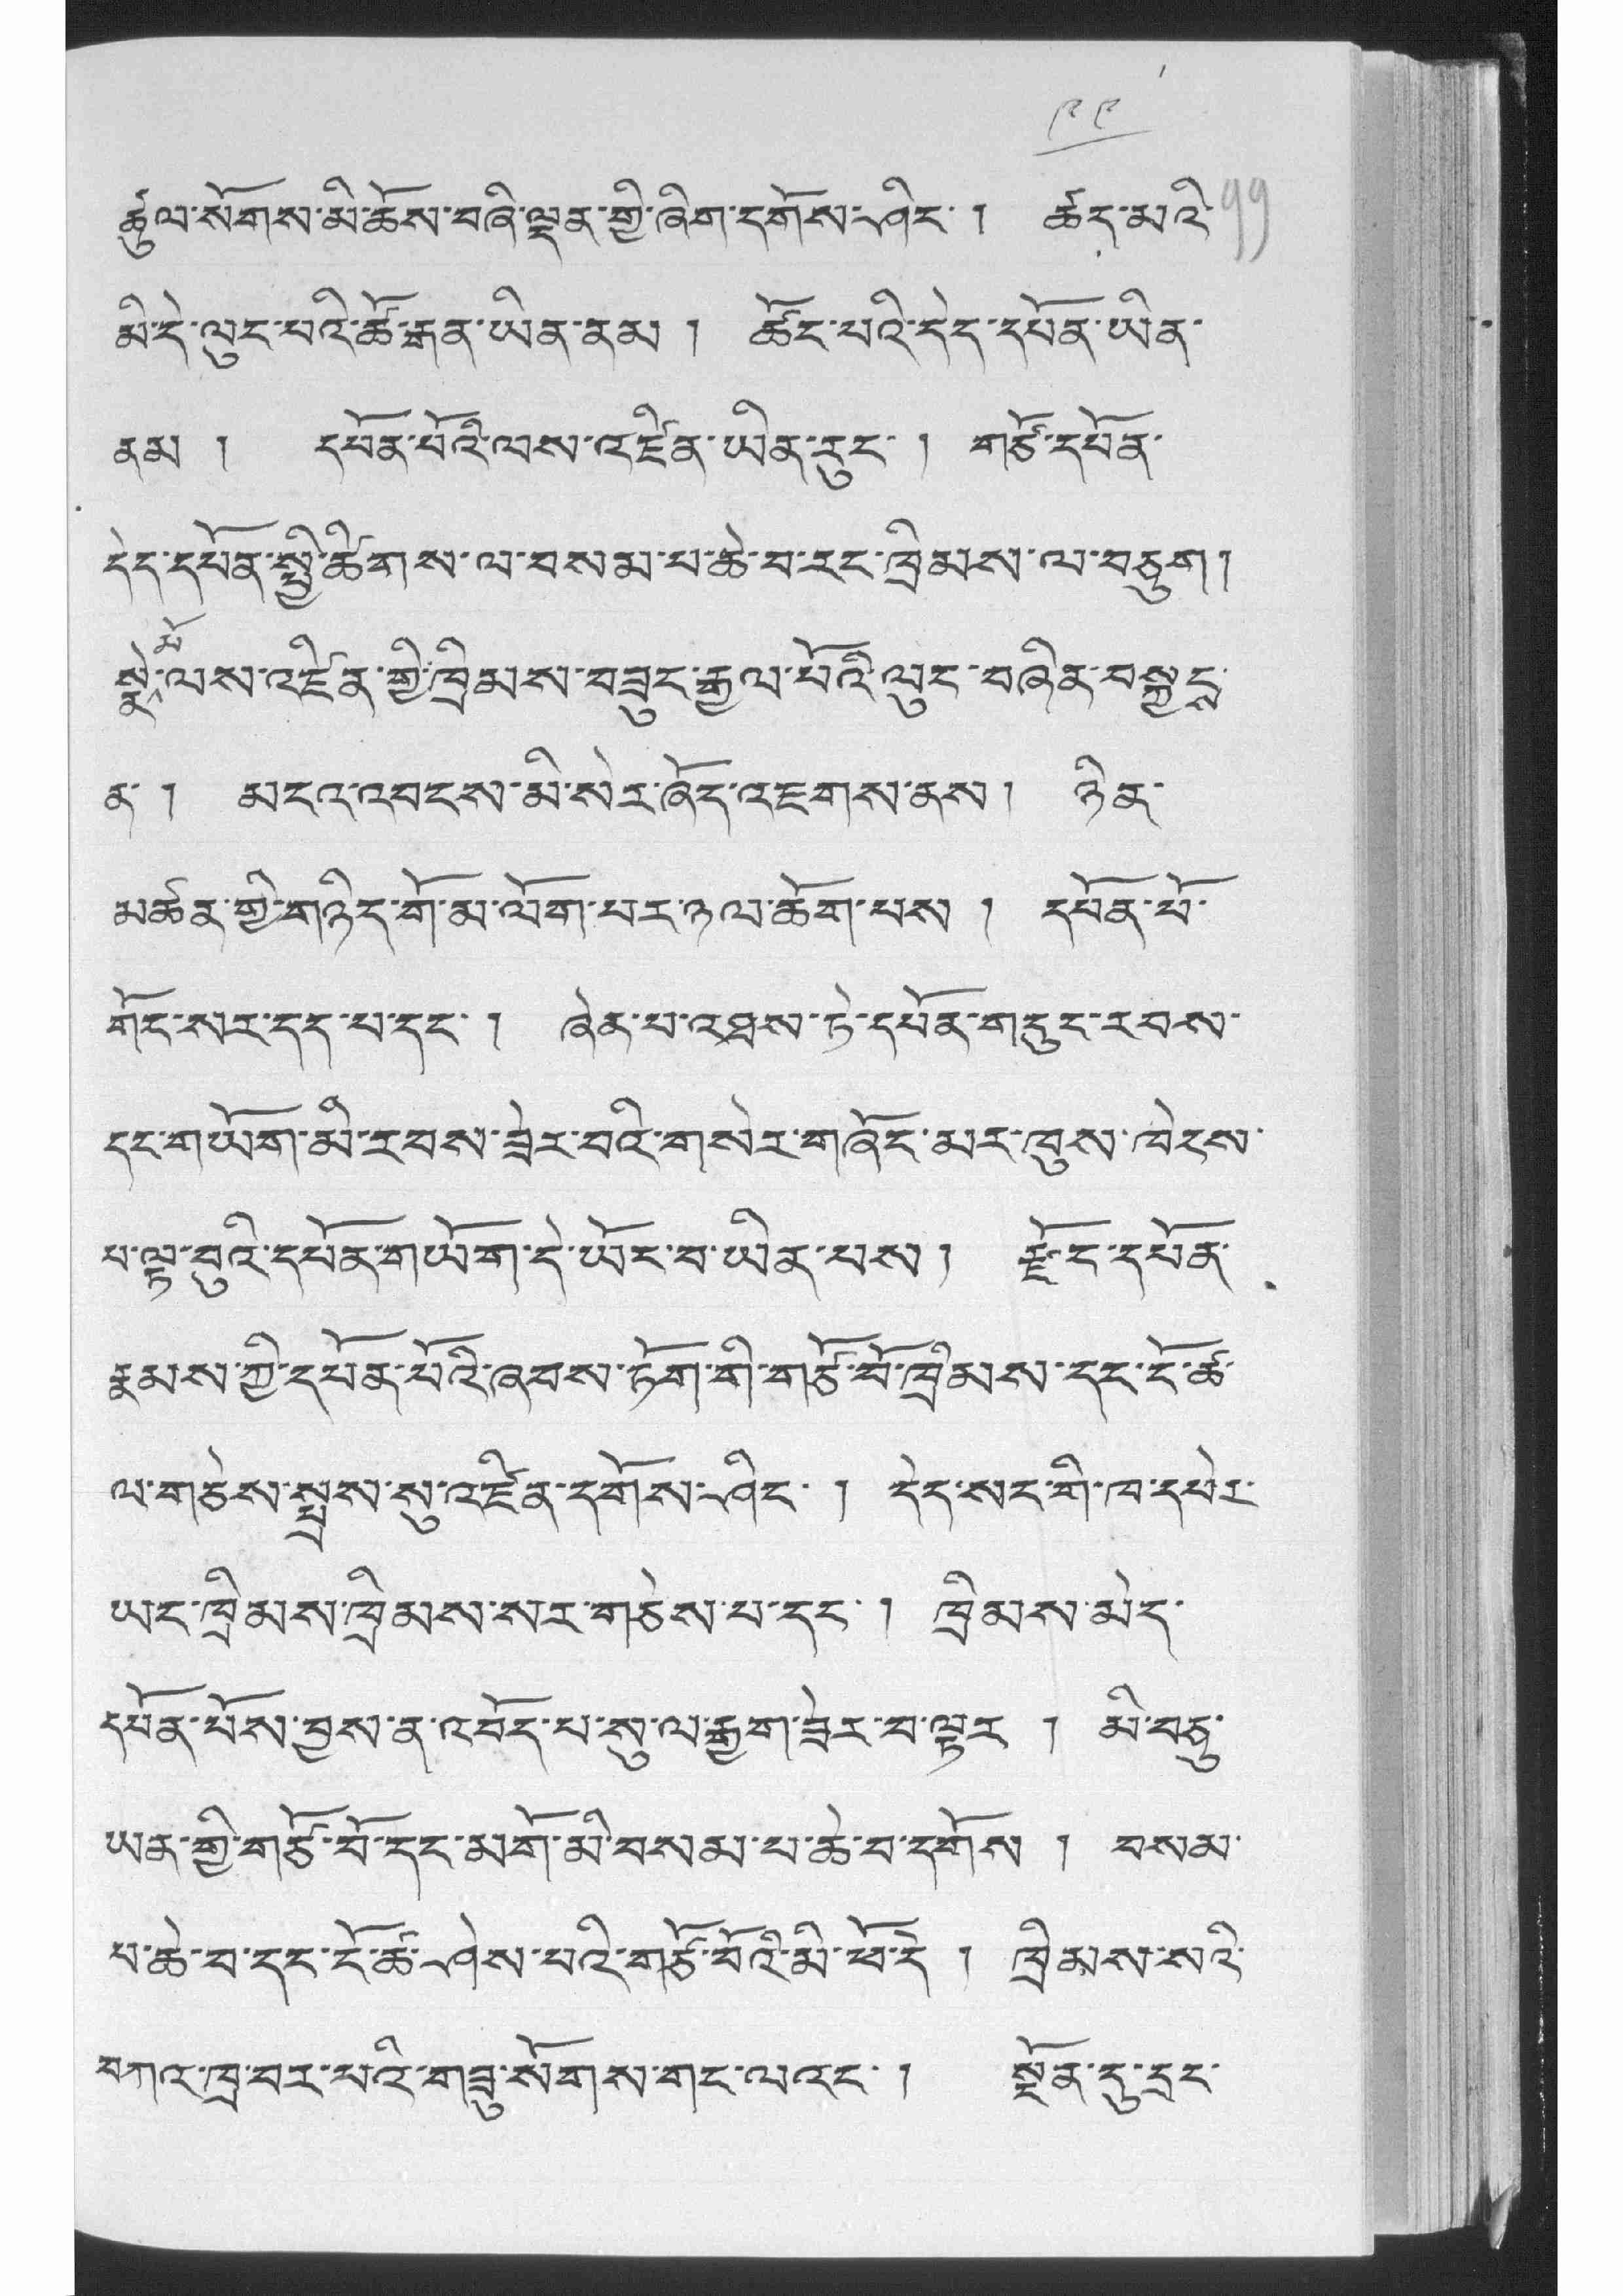 ༩༩
ཚུལ་སོགས་མི་ཆོས་བཞི་ལྡན་གྱི་ཞིག་དགོས་ཤིང་ །  ཚད་མའི་ 99
མི་དེ་ལུང་པའི་ཚོ་རྒན་ཡིན་ནམ །  ཚོང་པའི་དེད་དཔོན་ཡིན་
ནམ །  དཔོན་པོའི་ལས་འཛིན་ཡིན་རུང་ །  གཙོ་དཔོན་
དེད་དཔོན་སྤྱི་ཚིགས་ལ་བསམ་པ་ཆེ་བ་རང་ཁྲིམས་ལ་བཅུག །
སྣེ་མོ་ལས་འཛིན་གྱི་ཁྲིམས་བཟུང་རྒྱལ་པོའི་ལུང་བཞིན་བསྐྱང་
ན་ །  མངའ་འབངས་མི་སེར་ཞོད་འཇགས་ནས །  ཉིན་
མཚན་གྱི་གཉིད་གོ་མ་ལོག་པར་ཉལ་ཆོག་པས །  དཔོན་པོ་
གོང་སར་དད་པ་དང་ །  ཞེན་པ་འཐས་ཏེ་དཔོན་གདུང་རབས་
དང་གཡོག་མི་རབས་ཟེར་བའི་གསེར་གཞོང་མར་ཁུས་ཁེངས་
པ་ལྟ་བུའི་དཔོན་གཡོག་དེ་ཡོང་བ་ཡིན་པས །  རྫོང་དཔོན་
རྣམས་ཀྱི་དཔོན་པོའི་ཞབས་ཏོག་གི་གཙོ་བོ་ཁྲིམས་དང་ངོ་ཚ་
ལ་གཅེས་སྤྲས་སུ་འཛིན་དགོས་ཤིང་ །  དེང་སང་གི་ཁ་དཔེར་
ཡང་ཁྲིམས་ཁྲིམས་སར་གཅེས་པ་དང་ །  ཁྲིམས་མེད་
དཔོན་པོས་བྱས་ན་འབོད་པ་སུ་ལ་རྒྱག་ཟེར་བ་ལྟར །  མི་བཅུ་
ཡན་གྱི་གཙོ་བོ་དང་མགོ་མི་བསམ་པ་ཆེ་བ་དགོས །  བསམ་
པ་ཆེ་བ་དང་ངོ་ཚ་ཤེས་པའི་གཙོ་བོའི་མི་ཕོ་དེ །  ཁྲིམས་སའི་
བཀའ་ཁྲ་བར་པའི་གཟུ་སོགས་གང་ལའང་ །  སྔོན་དུ་དྲང་